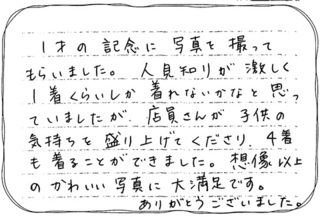 1才の記念に写真を撮って
もらいました。人見知りが激しく
1着くらいしか着れないかなと思っ
ていましたが、店員さんが子供の
気持ちを盛り上げてくださり、4着
も着ることができました。想像以上
のかわいい写真に大満足です。
ありがとうございました。